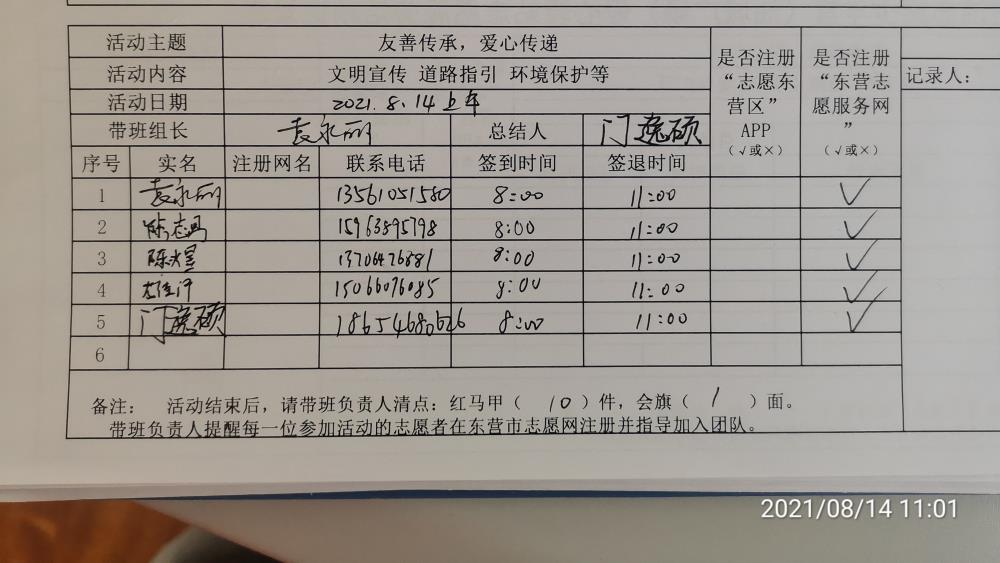 活动主题 友善传承，爱心传递 是否注册“志愿东营区”APP（√或×） 是否注册“东营志愿服务网”（√或×） 记录人：
活动内容 文明宣传 道路指引 环境保护等
活动日期 2021.8.14上午
带班组长 袁永丽 总结人 门逸硕
序号 实名 注册网名 联系电话 签到时间 签退时间
1 袁永丽 13561051580 8:00 11:00 √
2 15963895798 8:00 11:00 √
3 陈火星 13706476881 8:00 11:00 √
4 15066076085 8:00 11:00 √
5 门逸硕 18654680626 8:00 11:00 √
6
备注： 活动结束后，请带班负责人清点：红马甲（ 10 ）件，会旗（ 1 ）面。
带班负责人提醒每一位参加活动的志愿者在东营市志愿网注册并指导加入团队。
2021/08/14 11:01